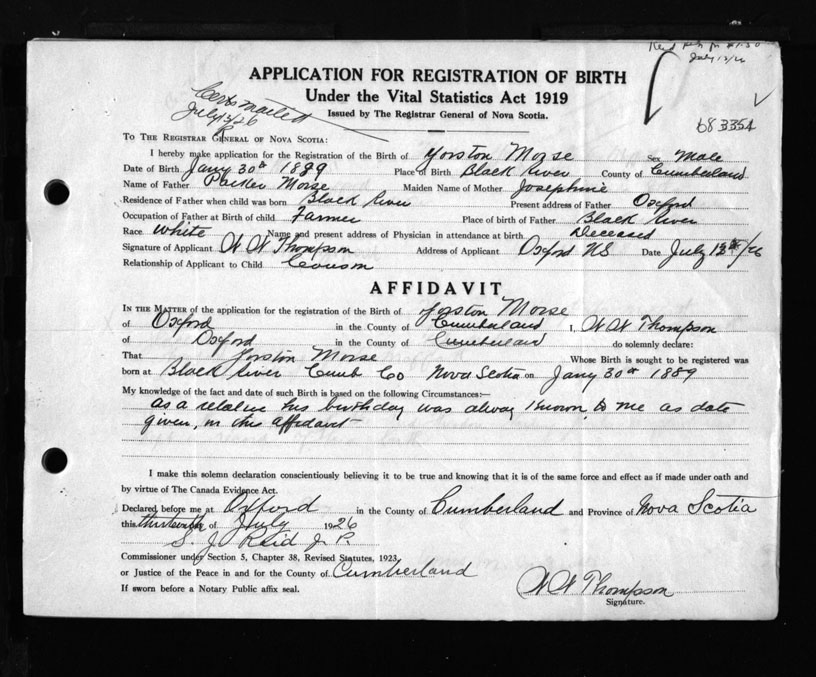 Reid
July 13/26
APPLICATION FOR REGISTRATION OF BIRTH
Under the Vital Statistics Act 1919
Issued by The Registrar General of Nova Scotia.
Certs mailed
July 13/26
683354
TO THE REGISTRAR GENERAL OF NOVA SCOTIA:
I hereby make application for the Registration of the Birth of Yorston Morse Sex Male
Date of Birth Jany 30th 1889 Place of Birth Black River County of Cumberland
Name of Father Parker Morse Maiden Name of Mother Josephine
Residence of Father when child was born Black River Present address of Father Oxford
Occupation of Father at Birth of child Farmer Place of birth of Father Black River
Race White Name and present address of Physician in attendance at birth Deceased
Signature of Applicant W W Thompson Address of Applicant Oxford NS Date July 13th/26
Relationship of Applicant to Child Couson
AFFIDAVIT
IN THE MATTER of the application for the registration of the Birth of Yorston Morse
of Oxford in the County of Cumberland I, W W Thompson
of Oxford in the County of Cumberland do solemnly declare:
That Yorston Morse Whose Birth is sought to be registered was
born at Black River Cumb Co Nova Scotia on Jany 30th 1889
My knowledge of the fact and date of such Birth is based on the following Circumstances:—
as a relative his birthday was alway Known to me as date
given, in this affidavit
I make this solemn declaration conscientiously believing it to be true and knowing that it is of the same force and effect as if made under oath and
by virtue of The Canada Evidence Act.
Declared before me at Oxford in the County of Cumberland and Province of Nova Scotia
this thirteenth of July 1926
S. J. Reid J. P.
Commissioner under Section 5, Chapter 38, Revised Statutes, 1923,
or Justice of the Peace in and for the County of Cumberland
If sworn before a Notary Public affix seal.
W W Thompson
Signature.